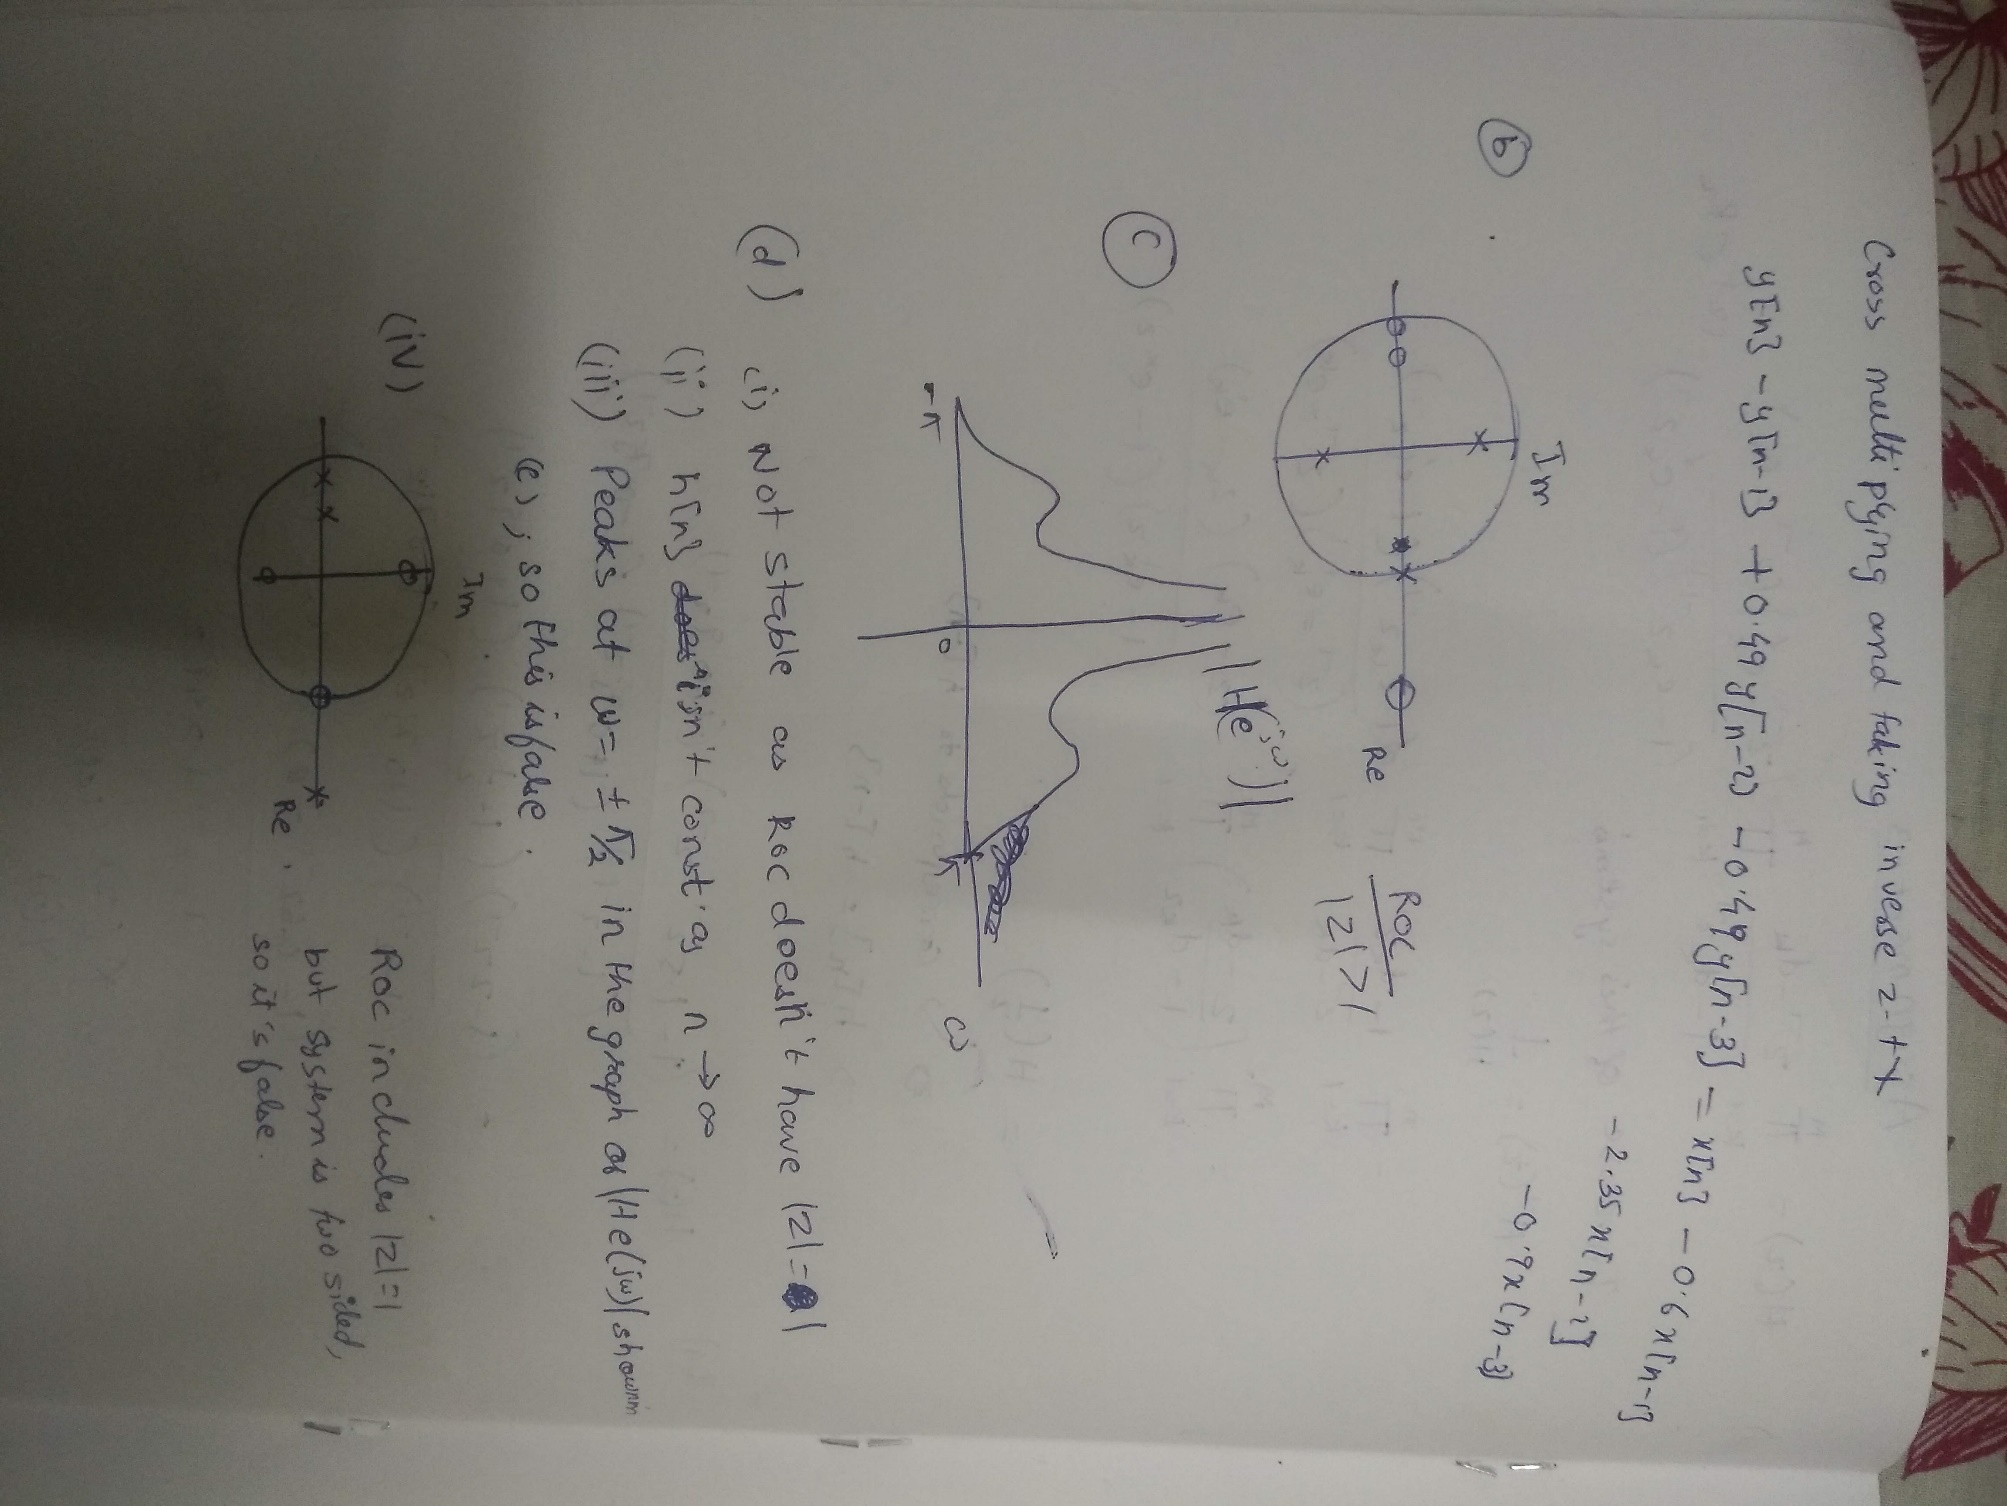 Cross multiplying and taking inverse z-tx
y[n] - y[n-1] + 0.49y[n-2] - 0.49y[n-3] = x[n] - 0.6x[n-1]
-2.35x[n-2]
-0.9x[n-3]
(b)
Im
Re
ROC
|z|>1
(c)
|H(e^jω)|
-π
0
π
ω
(d) (i) Not stable as ROC doesn't have |z|=1
(ii) h[n] isn't const. as n→∞
(iii) Peaks at ω=±π/2 in the graph of |He(jω)| shown in
(c), so this is false.
(iv)
Im
Re
ROC includes |z|=1
but system is two sided,
so it's false.